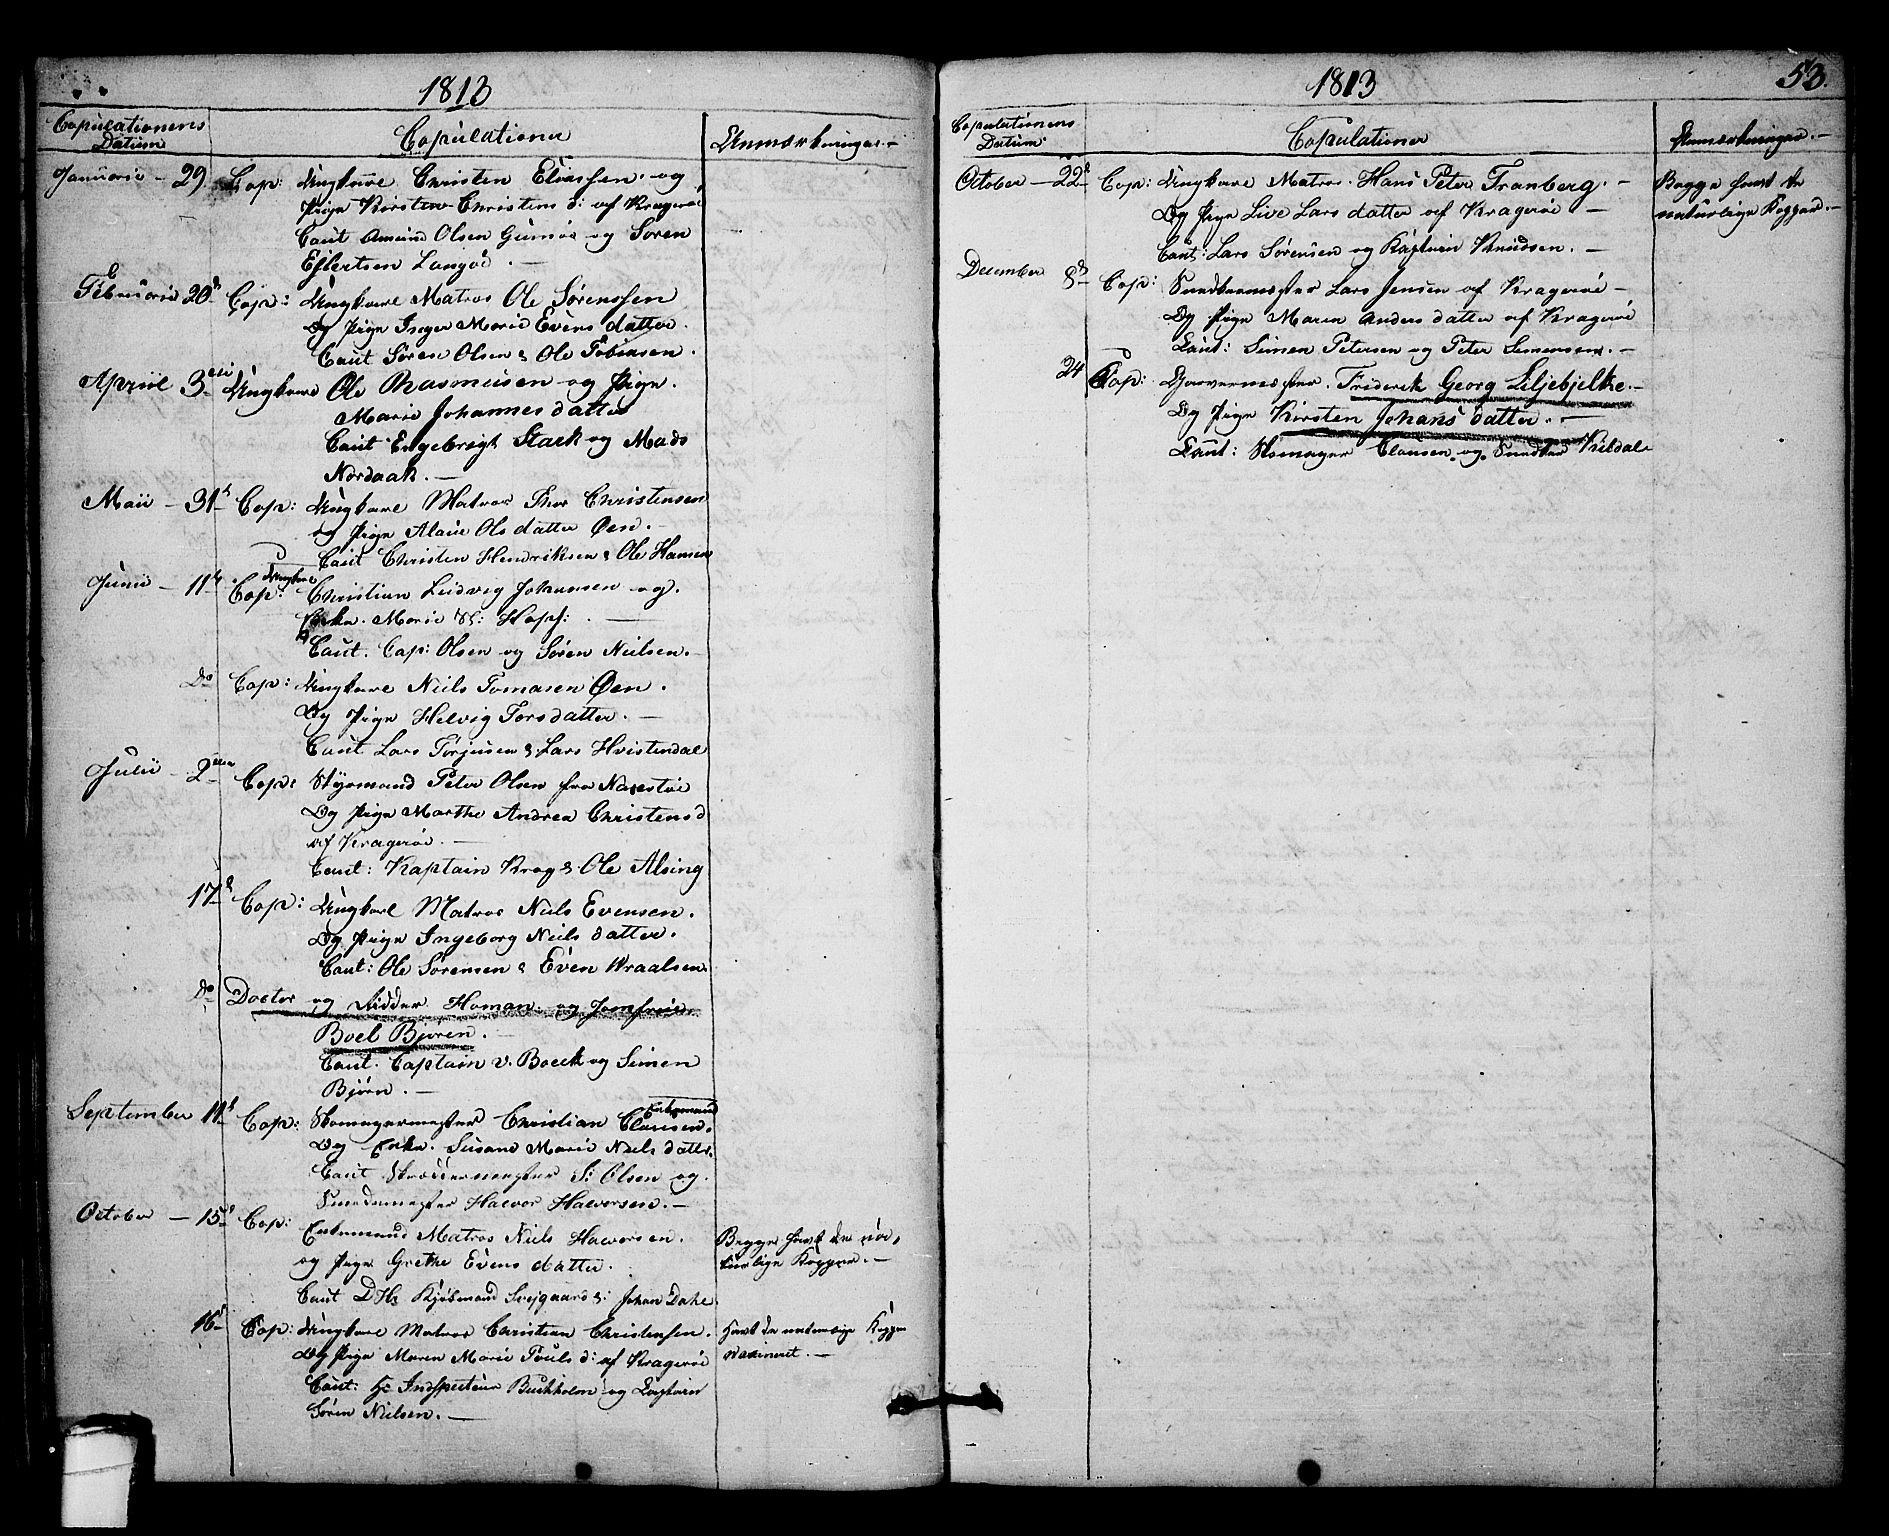 1813
Copulationens Datum
Copulationer
Anmærkninger. -
Januarii - 29 Cop: Ungkarl Christen Eliassen. og
Pige Kirsten Christens d: af Kragerøe
Caut Amund Olsen Gumøe og Søren
Eflertsen Langøe. -
Februarii 20d Cop: Ungkarl Matros Ole Sørenssen
Og Pige Inger Marie Evens datter.
Caut Søren Olsen & Ole Tobiasen.
Apriil 3die Ungkarl Ole Rasmusen og Pige.
Marie Johannes datter
Caut Engebregt Stack og Mads
Nordaak. -
Maii - 31t Cop: Ungkarl Matros Thor Christensen
og Pige Ols datter Øen. -
Caut Christen Hendriksen & Ole Hansen
Junii - 11t Cop: Ungkarl Christian Ludvig Johansen og.
Enke. Marie Sl: Hops: . -
Caut. Cap: Olsen og Søren Nielsen. -
Do Cop: Ungkarl Niels Tomasen Øen.
Og Pige Helvig Torsdatter. -
Caut Lars Torjusen & Lars Hvistendal
Julii - 2den Cop: Styrmand Peter Olsen fra Narestøe
Og Pige Marthe Andrea Christens d
af Kragerøe. -
Caut: Kaptain Krog & Ole Alsing
17d Cop: Ungkarl Matros Niels Evensen.
Og Pige Ingeborg Niels datter.
Caut: Ole Sørensen & Even Wraalsen.
Do Doctor og Ridder Homan. og Jomfrue.
Boel Bjøren. -
Caut. Captain v. Boeck og Simen
Bjørn. -
September 11d Cop: Skomagermester Christian Clausen. Enkemand
Og Enke. Susane Marie Niels datter.
Caut Skreddermester S: Olsen og.
Smedemester Halvor Halvorsen. -
October - 15d Cop: Enkemand Matros Niels Halvorsen.
og Pige Grethe Evens datter.
Caut D Hr Kjøbmand Svejgaard &: Johan Dahl
Begge havt de na-
turlige Kopper. -
16d Cop: Ungkarl Matros Christian Christensen.
Og Pige Maren Marie Pouls d: af Kragerøe
Caut: Hr Indspecteur Buchholm og Captain
Søren Nielsen. -
Havt de naturlige Kopper
vaxineret. -
1813
53.
Copulationens Datum
Copulationer
Anmærkninger. -
October - 22d Cop: Ungkarl Matros. Hans Peter Tranberg. -
Og Pige Live Lars datter af Kragerøe -
Caut: Lars Sørensen og Kaptain Knudsen. -
Begge havt de
naturlige Kopper. -
December 8d Cop: Snedkermester Lars Jensen af Kragerøe -
Og Pige Maren Anders datter af Kragerøe
Caut: Simen Petersen og Peter Simensen. -
24 Cop: Garvermester. Friderik Georg Liljebjelke. -
Og Pige Kirsten Johans datter. -
Caut: Skomager Clausen. og. Snedker Kildal